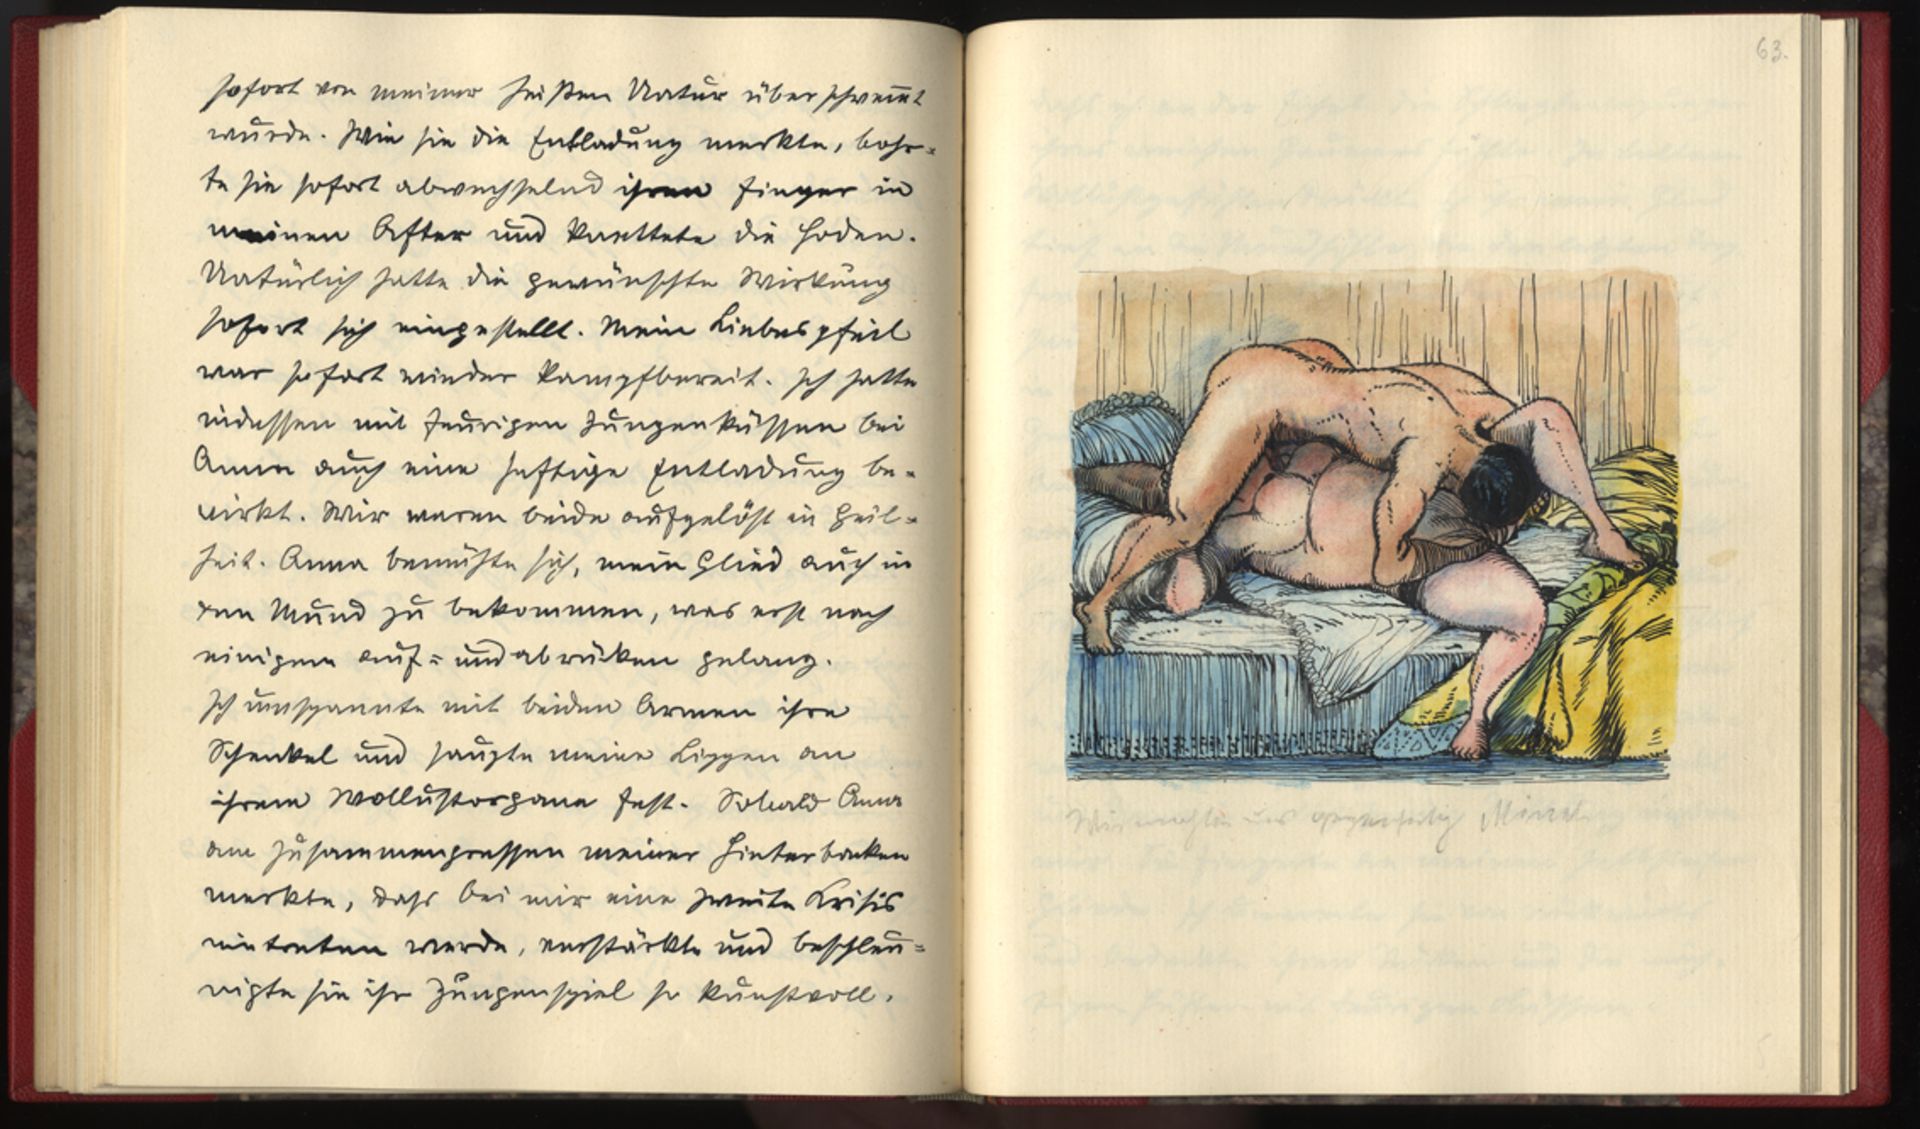 sofort von meiner heißen Natur überschwemmt
wurde. Wie sie die Entladung merkte, bohr=
te sie sofort abwechselnd ihren Finger in
meinen After und knettete die Hoden.
Natürlich hatte die gewünschte Wirkung
sofort sich eingestellt. Mein Liebespfeil
war sofort wieder kampfbereit. Ich hatte
indessen mit feurigen Zungenküssen bei
Anna auch eine heftige Entladung be=
wirkt. Wir waren beide aufgelöst in Geil=
heit. Anna bemühte sich, mein Glied auch in
den Mund zu bekommen, was erst nach
einigem auf= und abrücken gelang.
Ich umspannte mit beiden Armen ihre
Schenkel und saugte meine Lippen an
ihrem Wollustorgane fest. Sobald Anna
am Zusammenpressen meiner Hinterbacken
merkte, dass bei mir eine zweite Krisis
eintreten werde, verstärkte und beschleu=
nigte sie ihr Zungenspiel so kunstvoll.
63.
Wir machten uns gegenseitig